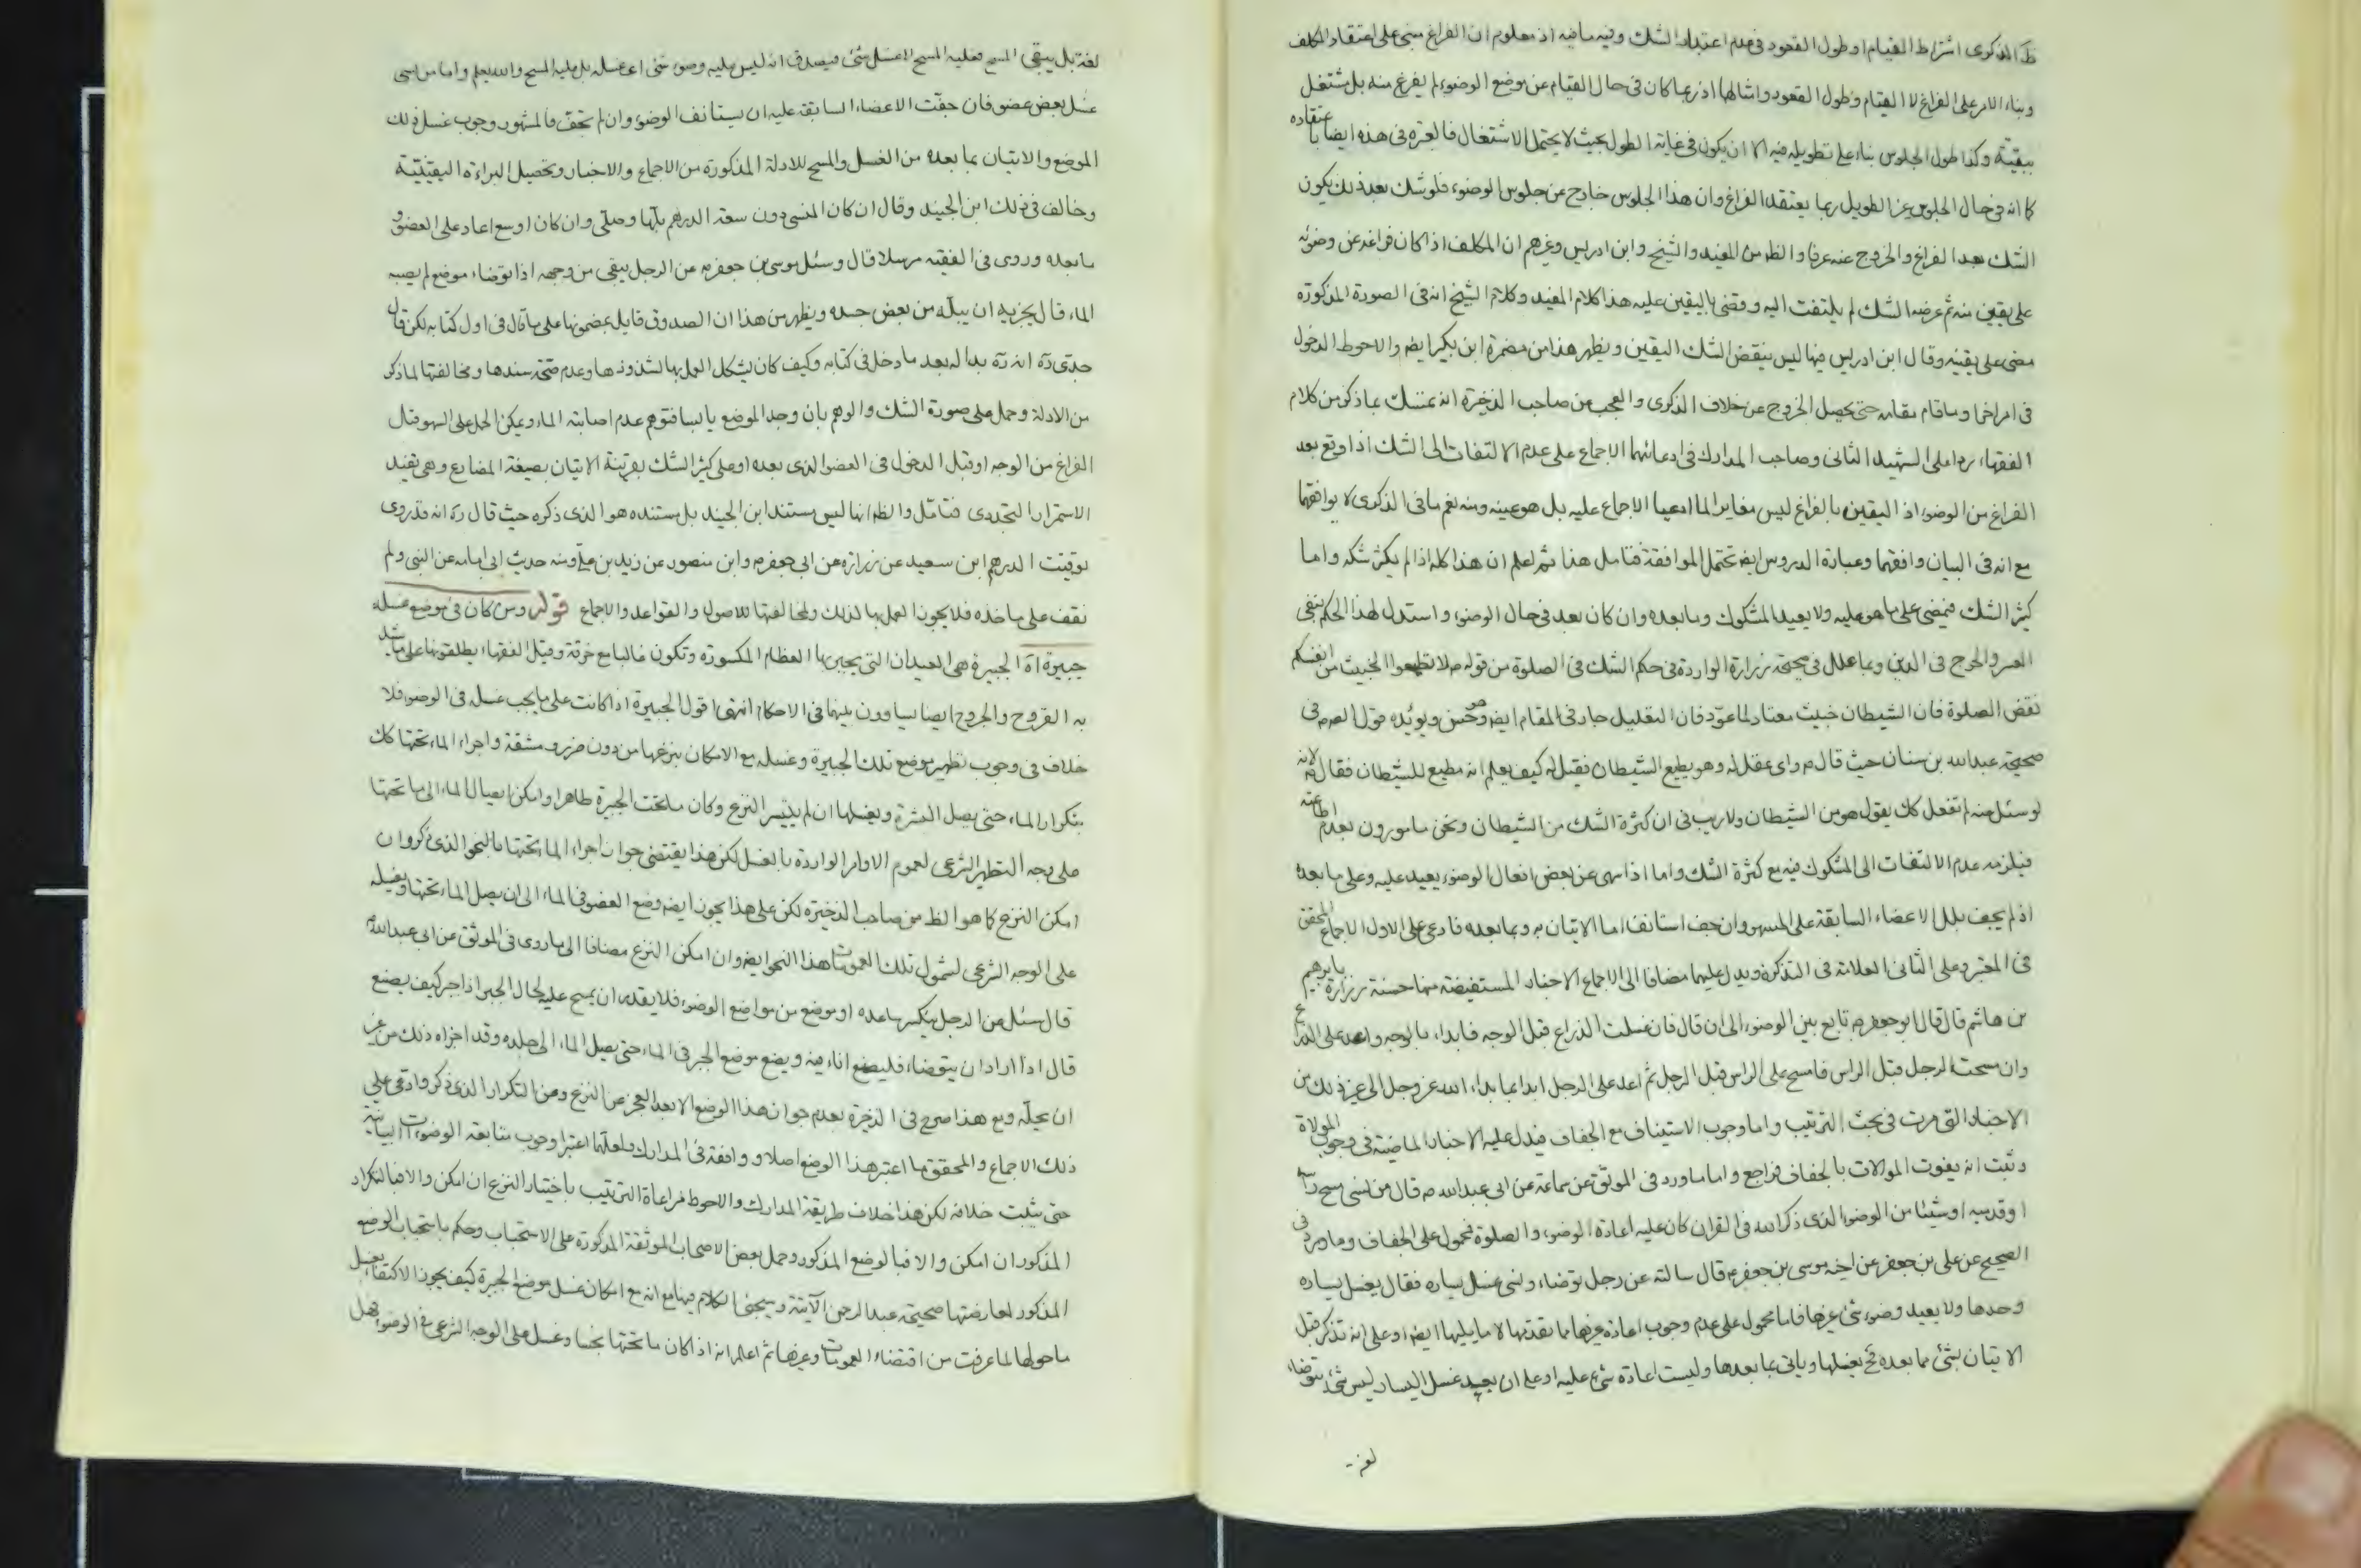 ظ الذكرى اشتراط القيام او طول القعود فى عدم اعتداد الشك وفيه ما فيه اذ معلوم ان الفراغ مبنى على اعتقاد المكلف
وبناء الامر على الفراغ لا القيام وطول القعود وامثالها اذ ربما كان فى حال القيام عن موضع الوضوء لم يفرغ منه بل مشتغل
ببقيته وكذا طول الجلوس بناء على تطويله فيه الا ان يكون فى غاية الطول بحيث لا يحتمل الاشتغال فالعبرة فى هذه ايضا باعتقاده
كما انه فى حال الجلوس غير الطويل ربما يعتقد الفراغ وان هذا الجلوس خارج عن جلوس الوضوء فلو شك بعد ذلك يكون
الشك بعد الفراغ والخروج عنه عرفا والظ من المفيد والشيخ وابن ادريس وغيرهم ان المكلف اذا كان فراغه عن وضوئه
على يقين منه ثم عرضه الشك لم يلتفت اليه وقضى باليقين عليه هذا كلام المفيد وكلام الشيخ انه فى الصورة المذكورة
مضى على يقينه وقال ابن ادريس فيها ليس ينقض الشك اليقين ويظهر هذا من مضمرة ابن بكير ايض والاحوط الدخول
فى امر اخر او ما قام مقامه حتى يحصل الخروج عن خلاف الذكرى والعجب من صاحب الذخيرة انه تمسك بما ذكر من كلام
الفقهاء ردا على الشهيد الثانى وصاحب المدارك فى ادعائهما الاجماع على عدم الالتفات الى الشك اذا وقع بعد
الفراغ من الوضوء اذ اليقين بالفراغ ليس مغايرا لما ادعيا الاجماع عليه بل هو عينه ومنه نعم ما فى الذكرى لا يوافقهما
مع انه فى البيان وافقهما وعبارة الدروس ايض تحتمل الموافقة فتامل هذا ثم اعلم ان هذا كله اذا لم يكثر شكه واما
كثير الشك فيمضى على ما هو عليه ولا يعيد المشكوك وما بعده وان كان بعد فى حال الوضوء واستدل لهذا الحكم بنفى
العسر والحرج فى الدين وبما علل فى صحيحة زرارة الواردة فى حكم الشك فى الصلوة من قوله ع لا تعودوا الخبيث من انفسكم
نقض الصلوة فان الشيطان خبيث معتاد لما عود فان التعليل جار فى المقام ايض وهو حسن ويؤيده قول الصم فى
صحيحة عبدالله بن سنان حيث قال م واى عقل له وهو يطيع الشيطان فقيل له كيف يعلم انه مطيع للشيطان فقال لانه
لو سئل منه لم تفعل كك يقول هو من الشيطان ولا ريب فى ان كثرة الشك من الشيطان ونحن مامورون بعدم اطاعته
فيلزمه عدم الالتفات الى المشكوك فيه مع كثرة الشك واما اذا سهى عن بعض افعال الوضوء يعيد عليه وعلى ما بعده
اذ لم يجف بلل الاعضاء السابقة على المسهو وان جف استانف اما الاتيان به وبما بعده فادعى على الاول الاجماع المحقق
فى المعتبر وعلى الثانى العلامة فى التذكرة ويدل عليهما مضافا الى الاجماع الاخبار المستفيضة منها حسنة زرارة بابرهيم
بن هاشم قال قال ابو جعفر م تابع بين الوضوء الى ان قال فان غسلت الذراع قبل الوجه فابداء بالوجه واعد على الذراع
وان مسحت الرجل قبل الراس فامسح على الراس قبل الرجل ثم اعد على الرجل ابدا بما بداء الله عز وجل الى غير ذلك من
الاخبار التى مرت فى بحث الترتيب واما وجوب الاستيناف مع الجفاف فيدل عليه الاخبار الماضية فى وجوب الموالاة
وثبت انه يفوت الموالات بالجفاف فراجع واما ما ورد فى الموثق عن سماعة عن ابى عبدالله م قال من نسى مسح راسه
او قدميه او شيئا من الوضوء الذى ذكر الله فى القران كان عليه اعادة الوضوء والصلوة فمحمول على الجفاف وما ورد فى
الصحيح عن على بن جعفر عن اخيه موسى بن جعفر م قال سالته عن رجل توضاء ونسى غسل يساره فقال يغسل يساره
وحدها ولا يعيد وضوء شئ غيرها فاما محمول على عدم وجوب اعادة غيرها مما تقدمها لا ما يليها ايض او على انه تذكر قبل
الاتيان بشئ مما بعده فح يغسلها وياتى بما بعدها وليست اعادة شئ عليه او على ان بعيد غسل اليسار ليس شئ يتوضاء
لغة بل يبقى المسح فعليه المسح لا غسل شئ فيصدق انه ليس عليه وضوء شئ اى غسله بل عليه المسح والله يعلم واما من نسى
غسل بعض عضو فان جفت الاعضاء السابقة عليه ان يستانف الوضوء وان لم تجف فالمشهور وجوب غسل ذلك
الموضع والاتيان بما بعده من الغسل والمسح للادلة المذكورة من الاجماع والاخبار وتحصيل البراءة اليقينية
وخالف فى ذلك ابن الجنيد وقال ان كان المنسى دون سعة الدرهم بلها وصلى وان كان اوسع اعاد على العضو و
ما بعده وروى فى الفقيه مرسلا قال وسئل موسى بن جعفر م عن الرجل يبقى من وجهه اذا توضاء موضع لم يصبه
الماء قال يجزيه ان يبله من بعض جسده ويظهر من هذا ان الصدوق قايل بمضمونها على ما قال فى اول كتابه لكن قال
جدى ره انه ره بدا له بعد ما دخل فى كتابه وكيف كان يشكل العمل بها لشذوذها وعدم صحة سندها ومخالفتها لما ذكر
من الادلة وحمل على صورة الشك والوهم بان وجد الموضع يابسا فتوهم عدم اصابته الماء ويمكن الحمل على السهو قبل
الفراغ من الوجه او قبل الدخول فى العضو الذى بعده او على كثير الشك بقرينة الاتيان بصيغة المضارع وهى تفيد
الاستمرار التجددى فتامل والظ انها ليس مستند ابن الجنيد بل مستنده هو الذى ذكره حيث قال ره انه قد روى
توقيت الدرهم ابن سعيد عن زرارة عن ابى جعفر م وابن منصور عن زيد بن على ومنه حديث ابى امامه عن النبى ولم
نقف على ماخذه فلا يجوز العمل بها لذلك ولمخالفتها للاصول والقواعد والاجماع قوله ومن كان فى موضع غسله
جبيرة اه الجبيرة هى العيدان التى يجبر بها العظام المكسورة وتكون غالبا مع خرقة وقيل الفقهاء يطلقونها على ما يشد
به القروح والجروح ايضا يساوون بينهما فى الاحكام انتهى اقول الجبيرة اذا كانت على ما يجب غسله فى الوضوء فلا
خلاف فى وجوب تطهير موضع تلك الجبيرة وغسله مع الامكان بنزعها من دون ضرر ومشقة واجراء الماء تحتها كك
بتكرار الماء حتى يصل البشرة ويغسلها ان لم يتيسر النزع وكان ما تحت الجبيرة طاهرا وامكن ايصال الماء الى ما تحتها
على وجه التطهير الشرعى لعموم الاوامر الواردة بالغسل لكن هذا يقتضى جواز اجراء الماء تحتها بالنحو الذى ذكر وان
امكن النزع كما هو الظ من صاحب الذخيرة لكن على هذا يجوز ايض وضع العضو فى الماء الى ان يصل الماء تحتها ويغسله
على الوجه الشرعى لشمول تلك العمومات هذا النحو ايض وان امكن النزع مضافا الى ما روى فى الموثق عن ابى عبدالله م
قال سئل عن الرجل ينكسر ساعده او موضع من مواضع الوضوء فلا يقدر ان يمسح عليه لحال الجبر اذا جبر كيف يصنع
قال اذا اراد ان يتوضاء فليضع اناء فيه ويضع موضع الجبر فى الماء حتى يصل الماء الى جلده وقد اجزاه ذلك من غير
ان يحله ومع هذا صرح فى الذخيرة بعدم جواز هذا الوضع الا بعد العجز عن النزع وعن التكرار الذى ذكر وادعى على
ذلك الاجماع والمحقق ما اعتبر هذا الوضع اصلا ووافقه فى المدارك ولعلهما اعتبرا وجوب متابعة الوضوءات البيانية
حتى يثبت خلافه لكن هذا خلاف طريقة المدارك والاحوط مراعاة الترتيب باختيار النزع ان امكن والا فبالتكرار
المذكور ان امكن والا فبالوضع المذكور وحمل بعض الاصحاب الموثقة المذكورة على الاستحباب وحكم باستحباب الوضع
المذكور لمعارضتها صحيحة عبد الرحمن الآتية وسيجئ الكلام فيها مع انه مع امكان غسل موضع الجبيرة كيف يجوز الاكتفاء بغسل
ما حولها لما عرفت من اقتضاء العمومات وغيرها ثم اعلم انه اذا كان ما تحتها نجسا وغسل على الوجه الشرعى فى الوضوء فهل